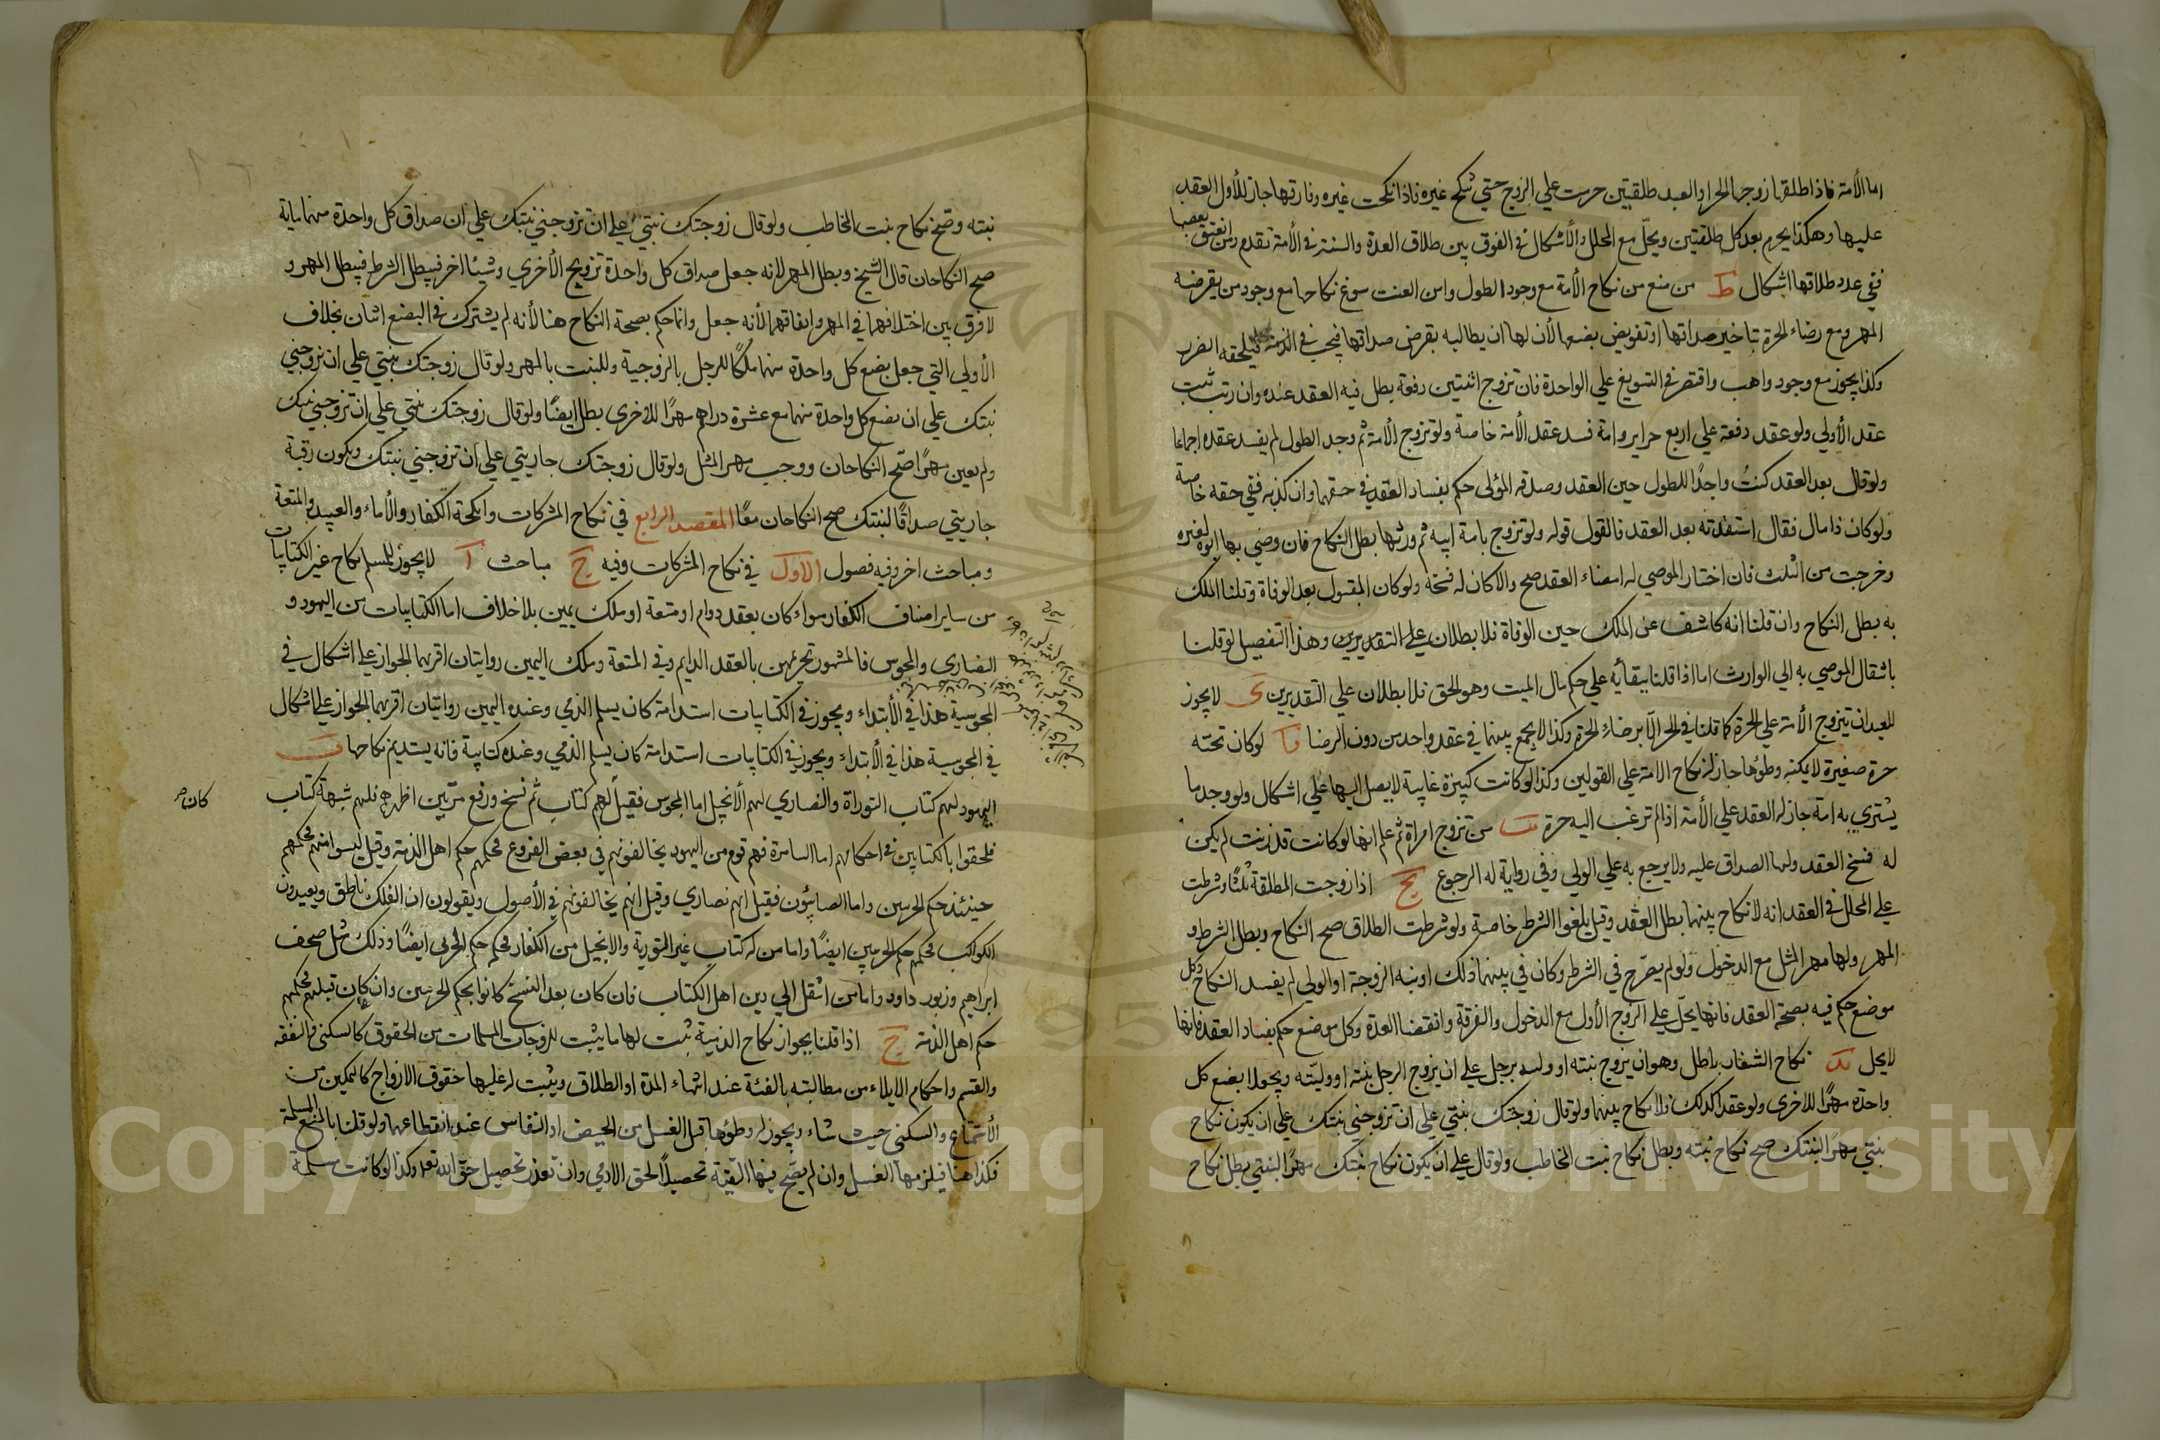 اما الأمة فاذا طلقها زوجها الحر او العبد طلقتين حرمت علي الزوج حتي تنكح غيره فاذا نكحت غيره وفارقها جاز للأول العقد
عليها وهكذا يحرم بعد كل طلقتين ويحل مع المحلل والأشكال في الفرق بين طلاق العدة والسنة في الأمة تقدم ومن انعتق بعضها
ففي عدد طلاقها اشكال ط من منع من نكاح الأمة مع وجود الطول وامن العنت سوغ نكاحها مع وجود من يقرضه
المهر ومع رضاء الحرة بتاخير صداقها او تفويض بضعها لأن لها ان يطالبه بفرض صداقها فيجب في الذمة فيلحقه الضرر
وكذا يجوز مع وجود واهب واقتصر في التسويغ علي الواحدة فان تزوج اثنتين دفعة بطل فيه العقد عنده وان رتب ثبت
عقد الأولي ولو عقد دفعة علي اربع حراير وامة فسد عقد الأمة خاصة ولو تزوج الأمة ثم وجد الطول لم يفسد عقده اجماعا
ولو قال بعد العقد كنت واجدًا للطول حين العقد وصدقه المولى حكم بفساد العقد في حقهما وان كذبه ففي حقه خاصة
ولو كان ذا مال فقال استفدته بعد العقد فالقول قوله ولو تزوج بامة ابيه ثم ورثها بطل النكاح فان وصي بها ابوه لغيره
وخرجت من الثلث فان اختار الموصي له امضاء العقد صح والا كان له فسخه ولو كان المقبول بعد الوفاة وقلنا الملك
به بطل النكاح وان قلنا انه كاشف عن الملك حين الوفاة فلا بطلان علي التقديرين وهذا التفصيل لو قلنا
بانتقال الموصي به الي الوارث اما اذا قلنا ببقائه علي حكم مال الميت وهو الحق فلا بطلان علي التقديرين ى لا يجوز
للعبد ان يتزوج الأمة علي الحرة كما قلنا في الحر الا برضاء الحرة وكذا لا يجمع بينهما في عقد واحد من دون الرضا يا لو كان تحته
حرة صغيرة لا يمكنه وطؤها جاز له نكاح الامة علي القولين وكذا لو كانت كبيرة غايبة لا يصل اليها علي اشكال ولو وجد ما
يشتري به امة جاز له العقد علي الأمة اذا لم ترغب اليه حرة يب من تزوج امراة ثم علم انها لو كانت قد زنت لم يكن
له فسخ العقد ولها الصداق عليه ولا يرجع به علي الولي وفي رواية له الرجوع يج اذا زوجت المطلقة ثلثًا وشرطت
علي المحلل في العقد انه لا نكاح بينهما بطل العقد وقيل يلغوا الشرط خاصة ولو شرطت الطلاق صح النكاح وبطل الشرط و
المهر ولها مهر المثل مع الدخول ولو لم يصرح في الشرط وكان في بينهما ذلك او نيه الزوجة او الولي لم يفسد النكاح وكل
موضع حكم فيه بصحة العقد فانها يحل علي الزوج الأول مع الدخول والفرقة وانقضا العدة وكل موضع حكم بفساد العقد فانها
لا يحل يد نكاح الشغار باطل وهو ان يزوج بنته او وليه برجل علي ان يزوج الرجل بنته او وليته ويجعلا بضع كل
واحدة مهرًا للاخرى ولو عقدا كذلك فلا نكاح بينهما ولو قال زوجتك بنتي علي ان تزوجني بنتك علي ان يكون نكاح
بنتي مهرًا لبنتك صح نكاح بنته وبطل نكاح بنت المخاطب ولو قال علي ان يكون نكاح بنتك مهرًا لبنتي بطل نكاح
بنته وصح نكاح بنت المخاطب ولو قال زوجتك بنتي علي ان تزوجني بنتك علي ان صداق كل واحدة منهما ماية
صح النكاحان قال الشيخ وبطل المهر لانه جعل صداق كل واحدة تزويج الأخري وشيئا اخر فيبطل الشرط فيبطل المهر و
لا فرق بين اختلافهما في المهر واتفاقهما لأنه جعل وانما حكم بصحة النكاح هنا لأنه لم يشترك في البضع اثنان بخلاف
الأولي التي جعل بضع كل واحدة منهما ملكًا للرجل بالزوجية وللبنت بالمهر ولو قال زوجتك بنتي علي ان تزوجني
بنتك علي ان بضع كل واحدة منهما مع عشرة دراهم مهرًا للاخرى بطل ايضًا ولو قال زوجتك بنتي علي ان تزوجني بنتك
ولم يعين مهرًا صح النكاحان ووجب مهر المثل ولو قال زوجتك جاريتي علي ان تزوجني بنتك ويكون رقبة
جاريتي صداقًا لبنتك صح النكاحان معًا المقصد الرابع في نكاح المشركات وانكحة الكفار والأماء والعبيد والمتعة
ومباحث اخر وفيه فصول الأول في نكاح المشركات وفيه ج مباحث آ لا يجوز للمسلم نكاح غير الكتابيات
من ساير اصناف الكفار سواء كان بعقد دوام او متعة او ملك يمين بلا خلاف اما الكتابيات من اليهود و
النصاري والمجوس فالمشهور تحريمهن بالعقد الدايم وفي المتعة وملك اليمين روايتان اقربهما الجواز علي اشكال في
المجوسية هذا في الأبتداء ويجوز في الكتابيات استدامة كان يسلم الذمي وعنده اليمين روايتان اقربهما الجواز علي اشكال
في المجوسية هذا في الأبتداء ويجوز في الكتابيات استدامة كان يسلم الذمي وعنده كتابية فانه يستديم نكاحها ب
اليهود لهم كتاب التوراة والنصاري لهم الأنجيل اما المجوس فقيل لهم كتاب ثم نسخ ورفع من بين اظهرهم فلهم شبهة كتاب
كان
فلحقوا بالكتابين في احكامهم اما السامرة فهم قوم من اليهود يخالفونهم في بعض الفروع فحكمهم حكم اهل الذمة وقيل ليسوا منهم فحكمهم
حينئذ حكم الحربين واما الصابئون فقيل انهم نصاري وقيل انهم يخالفونهم في الأصول ويقولون ان الفلك ناطق ويعبدون
الكواكب فحكمهم حكم الحربين ايضًا واما من له كتاب غير التورية والانجيل من الكفار فحكمه حكم الحربى ايضًا وذلك مثل صحف
ابراهيم وزبور داود واما من انتقل الي دين اهل الكتاب فان كان بعد النسخ كانوا بحكم الحربين وان كان قبله فحكمهم
حكم اهل الذمة ج اذا قلنا بجواز نكاح الذمية ثبت لها ما يثبت للزوجات المسلمات من الحقوق كالسكنى والنفقة
والقسم واحكام الايلاء من مطالبته بالفئة عند انتهاء المدة او الطلاق ويثبت له عليها حقوق الازواج كالتمكين من
الأستمتاع والسكنى حيث شاء ويجوز له وطؤها قبل الغسل من الحيض او النفاس عند انقطاعهما ولو قلنا بالمنع في المسلمة
فكذا هنا فيلزمها الغسل وان لم يصح فيها النية تحصيلاً لحق الادمي وان تعذر تحصيل حق الله تعالى وكذا لو كانت مسلمة
Copyright © King Saud University